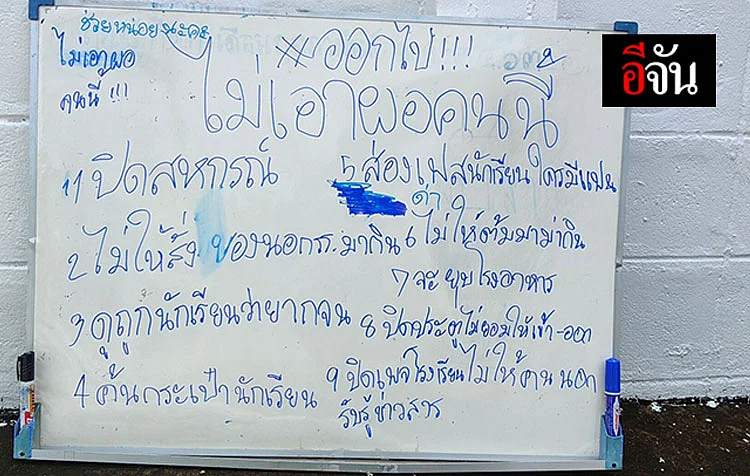 ช่วยหน่อยนะคะ
ไม่เอาผอ
คนนี้ !!!
#ออกไป!!!
ไม่เอาผอคนนี้
อีจัน
1 ปิดสหกรณ์
2 ไม่ให้สั่งของนอกรร.มากิน
3 ดูถูกนักเรียนว่ายากจน
4 ค้นกระเป๋านักเรียน
5 ส่องเฟสนักเรียนใครมีแฟน
ด่า
6 ไม่ให้ต้มมาม่ากิน
7 จะยุบโรงอาหาร
8 ปิดประตูไม่ยอมให้เข้า-ออก
9 ปิดเพจโรงเรียนไม่ให้คนนอก
รับรู้ข่าวสาร